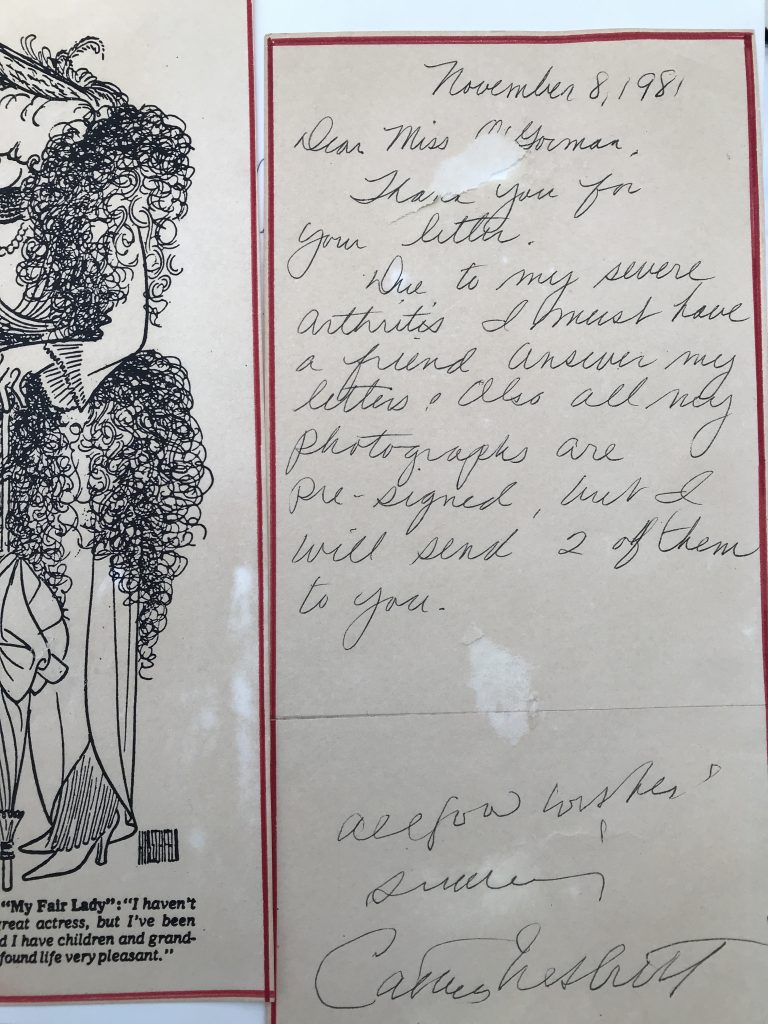 HIRSCHFELD
"My Fair Lady": "I haven't
great actress, but I've been
d I have children and grand-
found life very pleasant."
November 8, 1981
Dear Miss McGorman,
Thank you for
your letter.
Due to my severe
arthritis I must have
a friend answer my
letters. Also all my
photographs are
pre-signed, but I
will send 2 of them
to you.
All good wishes
Sincerely
Cathleen Nesbitt